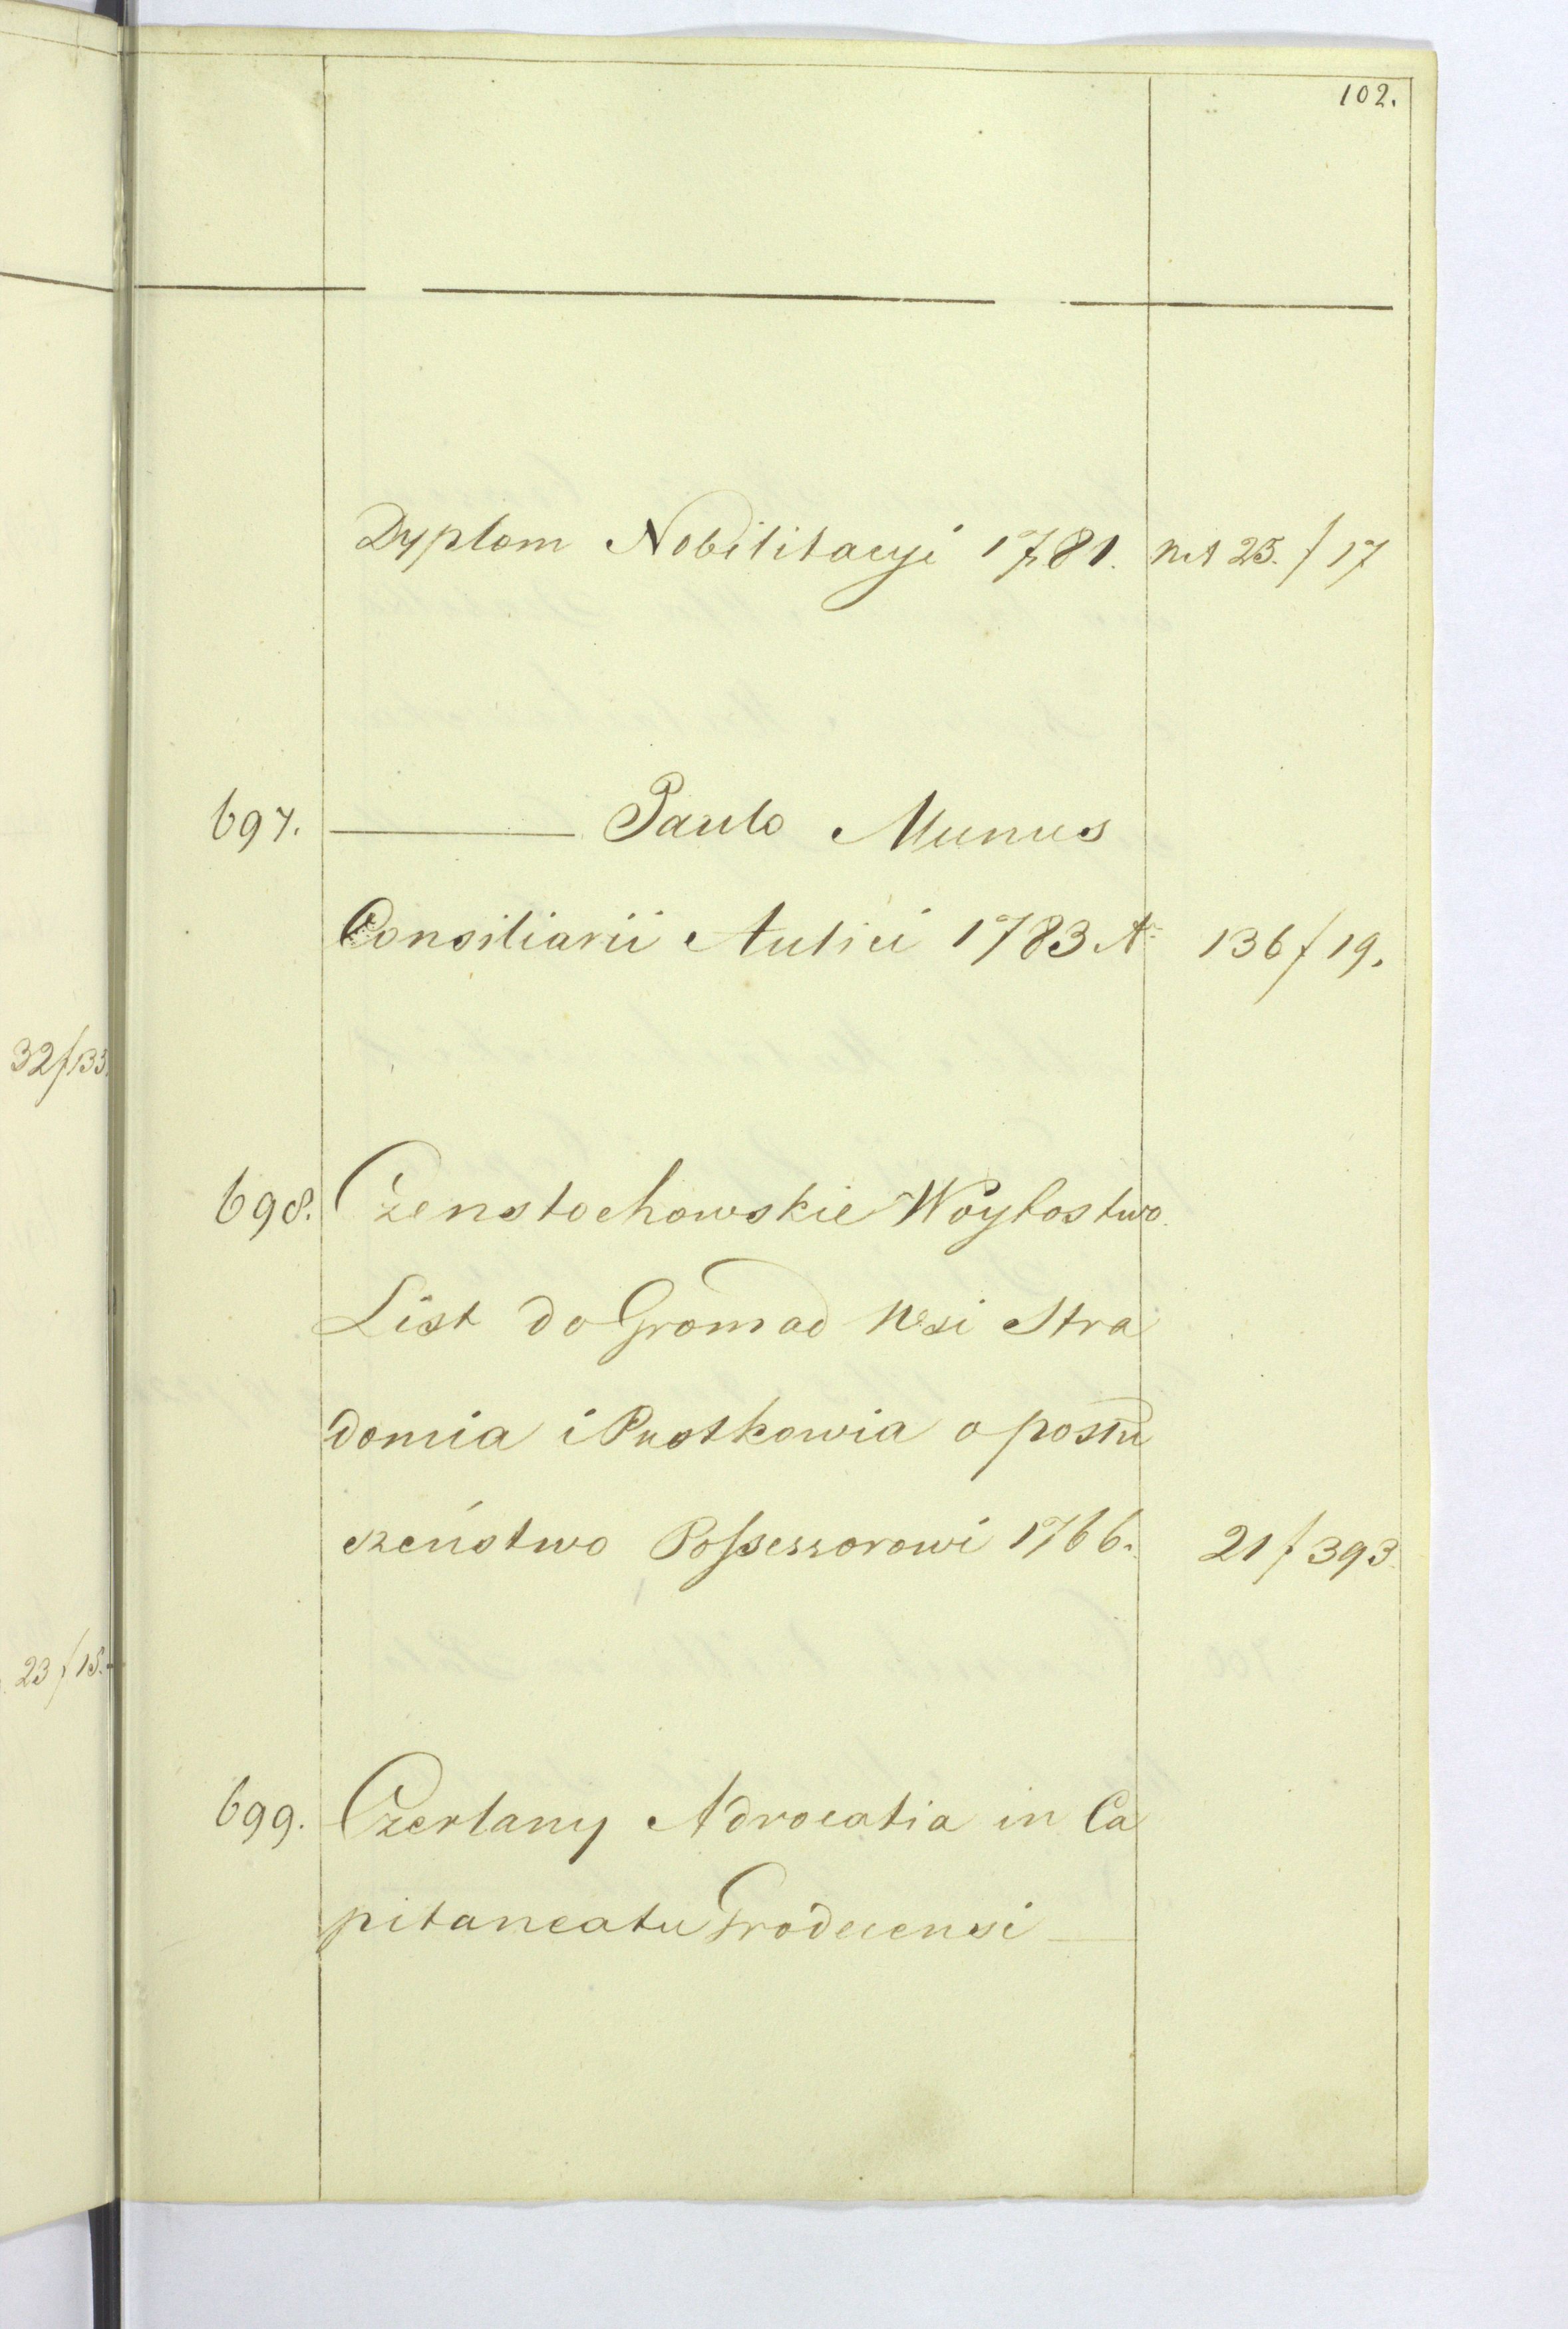 102.
Dyplom Nobilitacyi 1781. 25. f 17
697. Paulo Munus
Consiliarii Aulici 1783 A: 136 f 19.
32 f 133
698. Czenstochowskie Woytostwo.
List do Gromad Wsi Stra
domia i o posłu
szeństwo Possessorowi 1766. 21 f 393.
23 f 15.
699. Czerlany Advocatia in Ca
pitaneatu Grodecensi